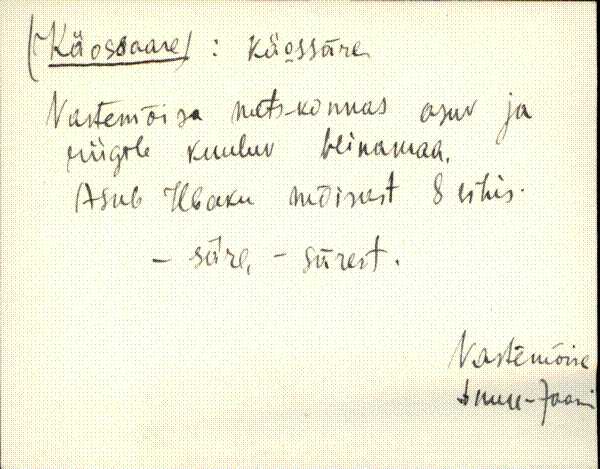 (Käossaare) : Käossäre
Vastemõisa metskonnas asuv ja
riigile kuuluv heinamaa.
Asub Ilbaku mõisast 8 
– säre, – särest.
Vastemõisa
Suure-Jaani